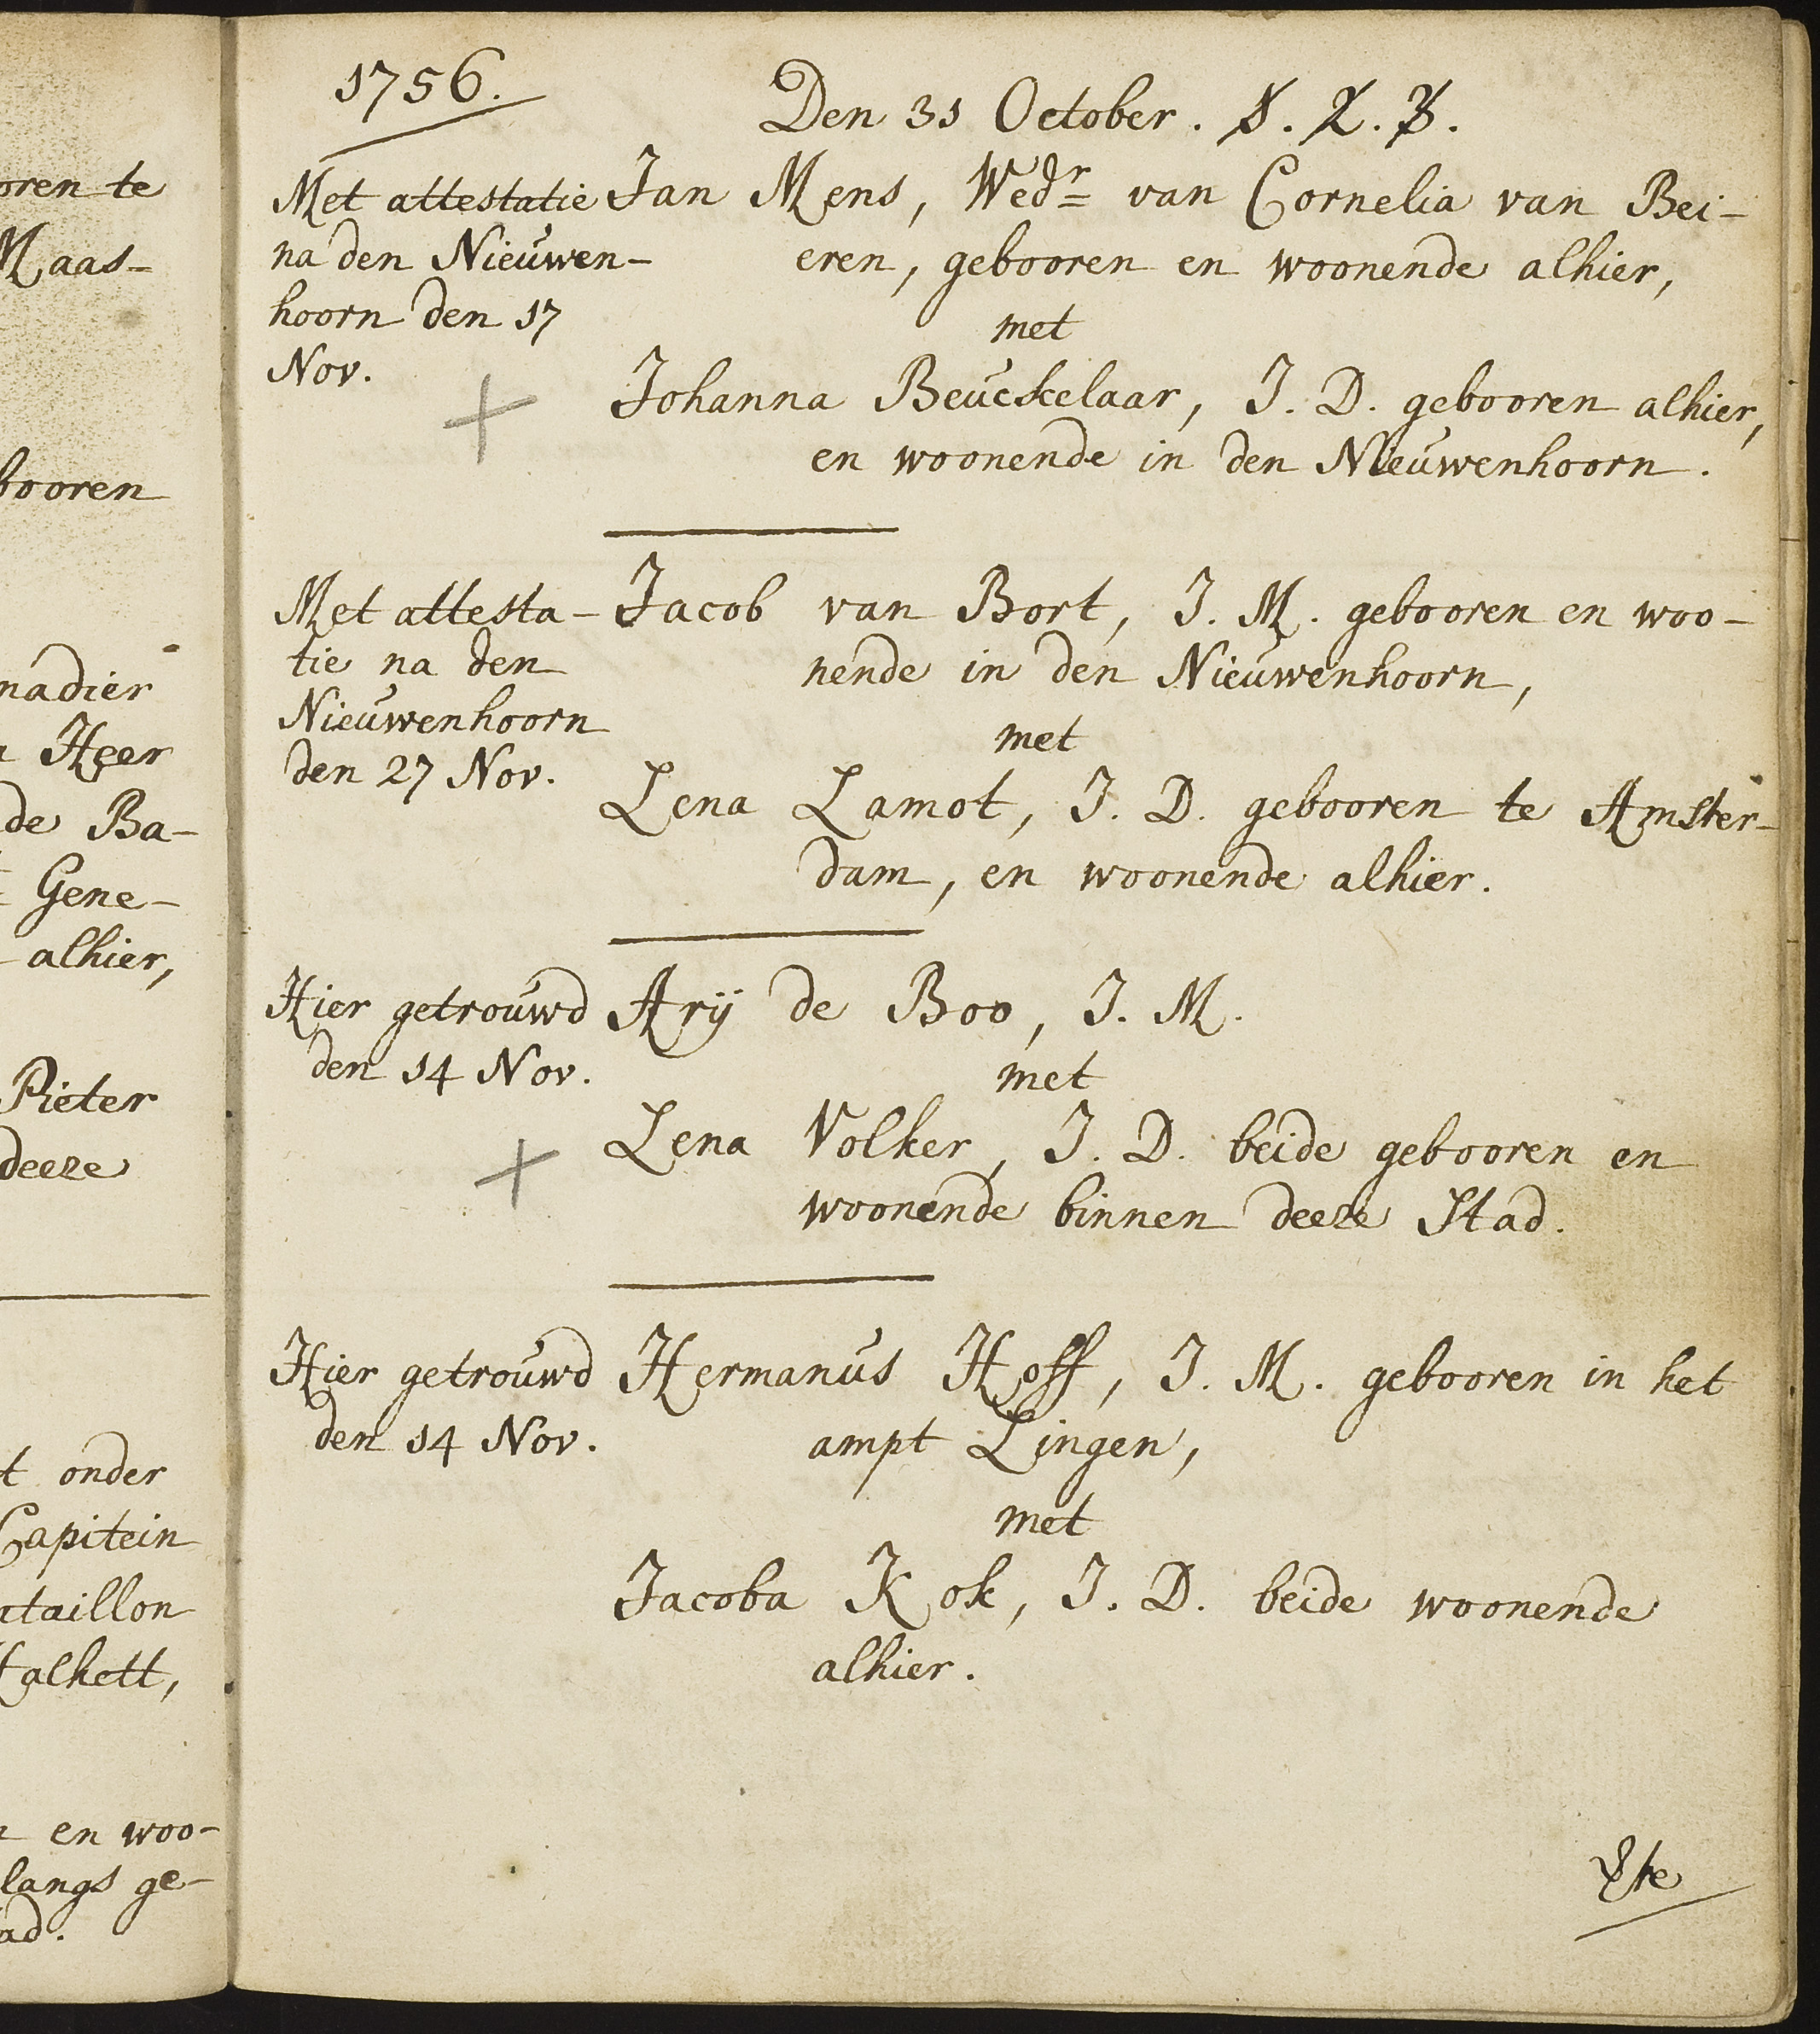 oren te
Maas-
booren
nadier
Heer
de Ba-
Gene-
alhier,
Pieter
deeze
t onder
Capitein
ataillon
Halkett,
en woo-
langs ge-
ad.
1756.
Den 31 October. 1. 2. 3.
Met attestatie
na den Nieuwen-
hoorn den 17
Nov.
Jan Mens, Wedr van Cornelia van Bei-
eren, gebooren en woonende alhier,
met
Johanna Beuckelaar, J. D. gebooren alhier,
en woonende in den Nieuwenhoorn.
Met attesta-
tie na den
Nieuwenhoorn
den 27 Nov.
Jacob van Bort, J. M. gebooren en woo-
nende in den Nieuwenhoorn,
met
Lena Lamot, J. D. gebooren te Amster-
dam, en woonende alhier.
Hier getrouwd
den 14 Nov.
Arij de Boo, J. M.
met
Lena Volker, J. D. beide gebooren en
woonende binnen deeze Stad.
Hier getrouwd
den 14 Nov.
Hermanus Hoff, J. M. gebooren in het
ampt Lingen,
met
Jacoba Kok, J. D. beide woonende
alhier.